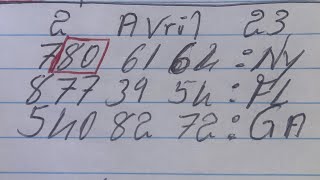 2 Avril 23
780 61 64 : NY
877 39 54 : FL
540 82 72 : GA